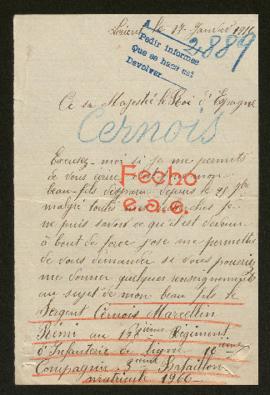 le 17 Janvier
22889
Pedir informes
Que se hace así
Devolver
A sa Majesté le Roi d'Espagne
Cernois
Excusez-moi si je me permets
de vous écrire mon
beau-fils disparu depuis le 21
malgré toutes
Fecho
puis savoir ce qu'il est devenu
e.a.e.
à bout de force j'ose me permettre
de vous demander si vous pourriez
me donner quelques renseignements
au sujet de mon beau fils le
Sergent Cernois Marcellin
Rémi au Régiment
d'Infanterie de ligne
Compagnie Bataillon
matricule